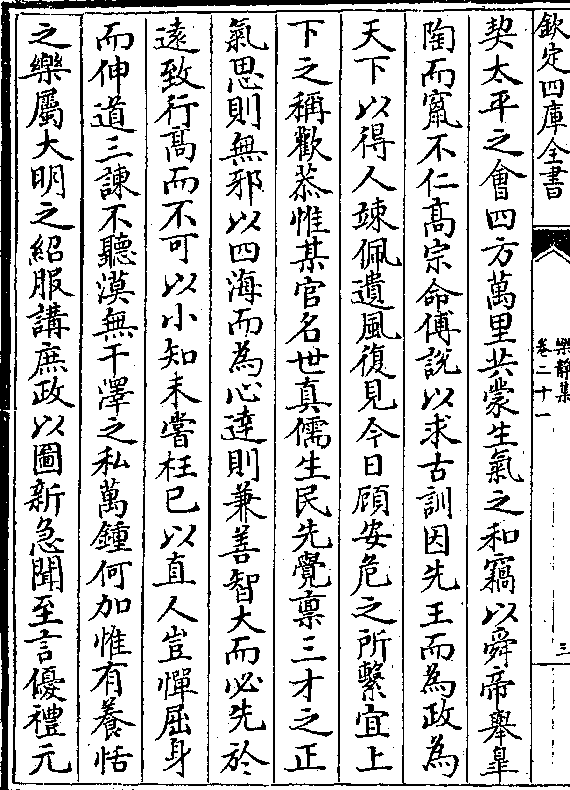 欽定四庫全書
樂靜集
卷二十一
三
契太平之會四方萬里共蒙生氣之和竊以舜帝舉皐
陶而竄不仁髙宗命傅説以求古訓因先王而為政為
天下以得人竦佩遺風復見今日顧安危之所繫宜上
下之稱歡恭惟某官名世真儒生民先覺禀三才之正
氣思則無邪以四海而為心達則兼善智大而必先於
遠致行髙而不可以小知未嘗枉已以直人豈憚屈身
而伸道三諫不聽漠無干澤之私萬鍾何加惟有養恬
之樂屬大明之紹服講庶政以圖新急聞至言優禮元